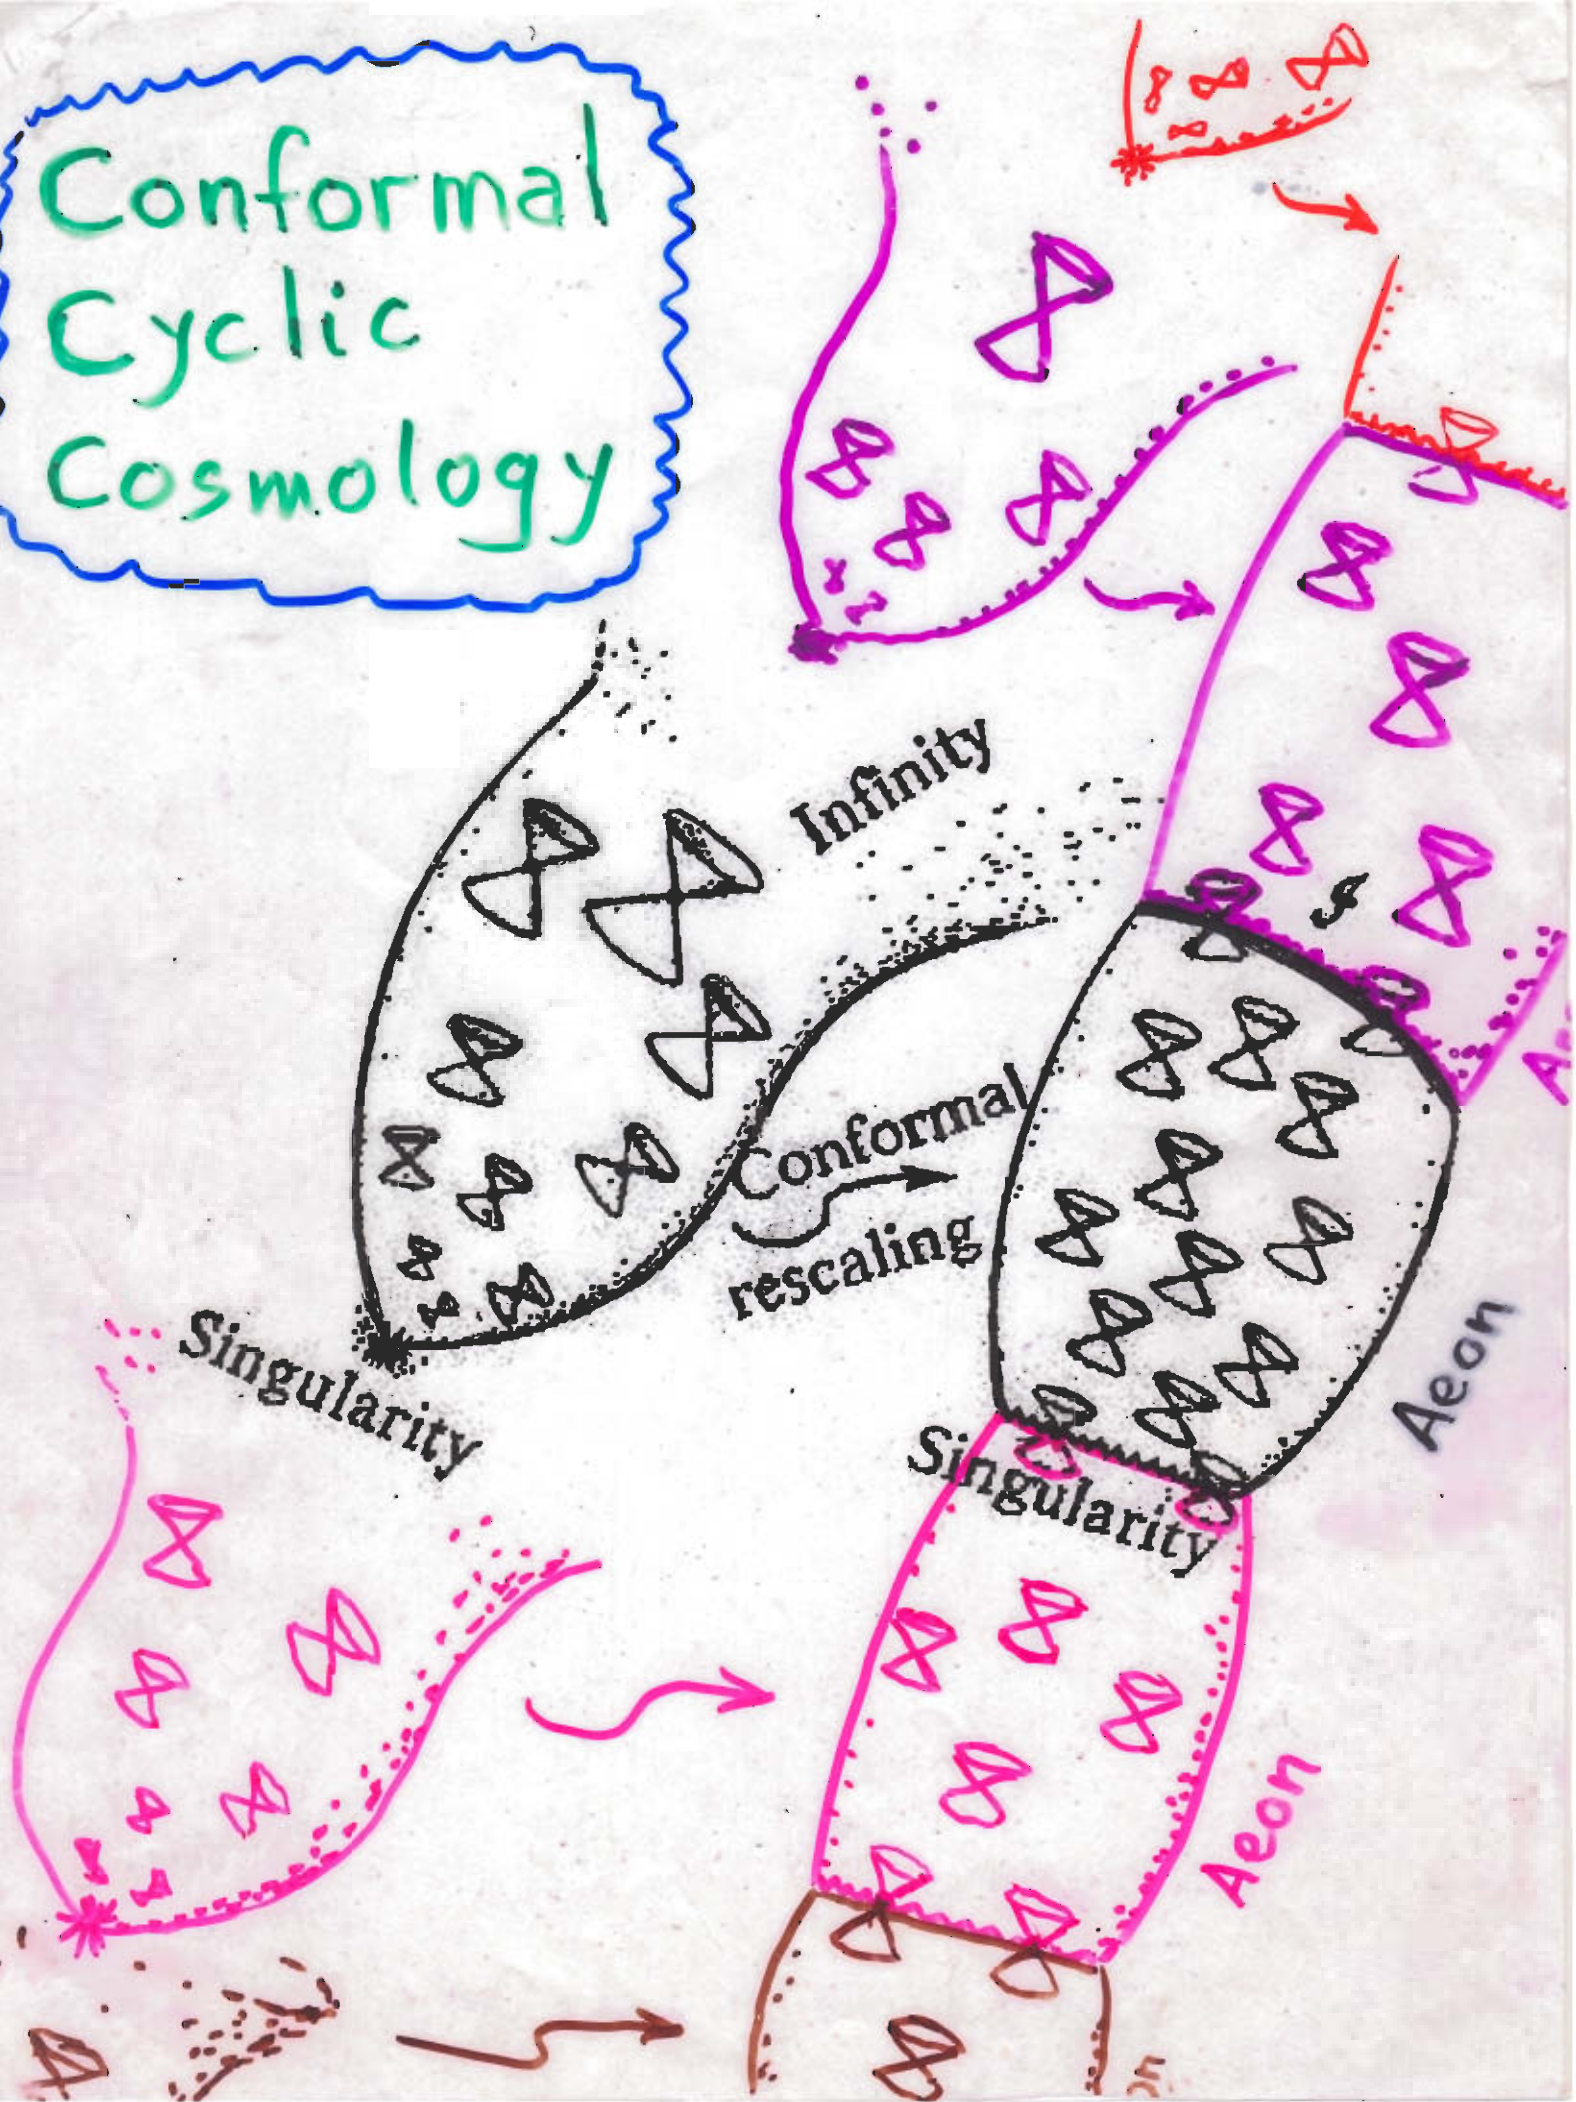 Conformal
Cyclic
Cosmology
Infinity
Conformal
rescaling
Singularity
Aeon
Singularity
Aeon